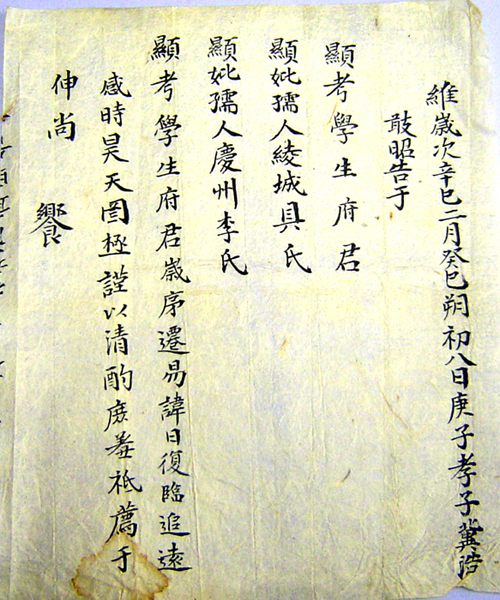 維歲次辛巳二月癸巳朔初八日庚子孝子冀浩
敢昭告于
顯考學生府君
顯妣孺人綾城具氏
顯妣孺人慶州李氏
顯考學生府君歲序遷易諱日復臨追遠
感時昊天罔極謹以清酌庶羞祗薦于
伸尚
饗